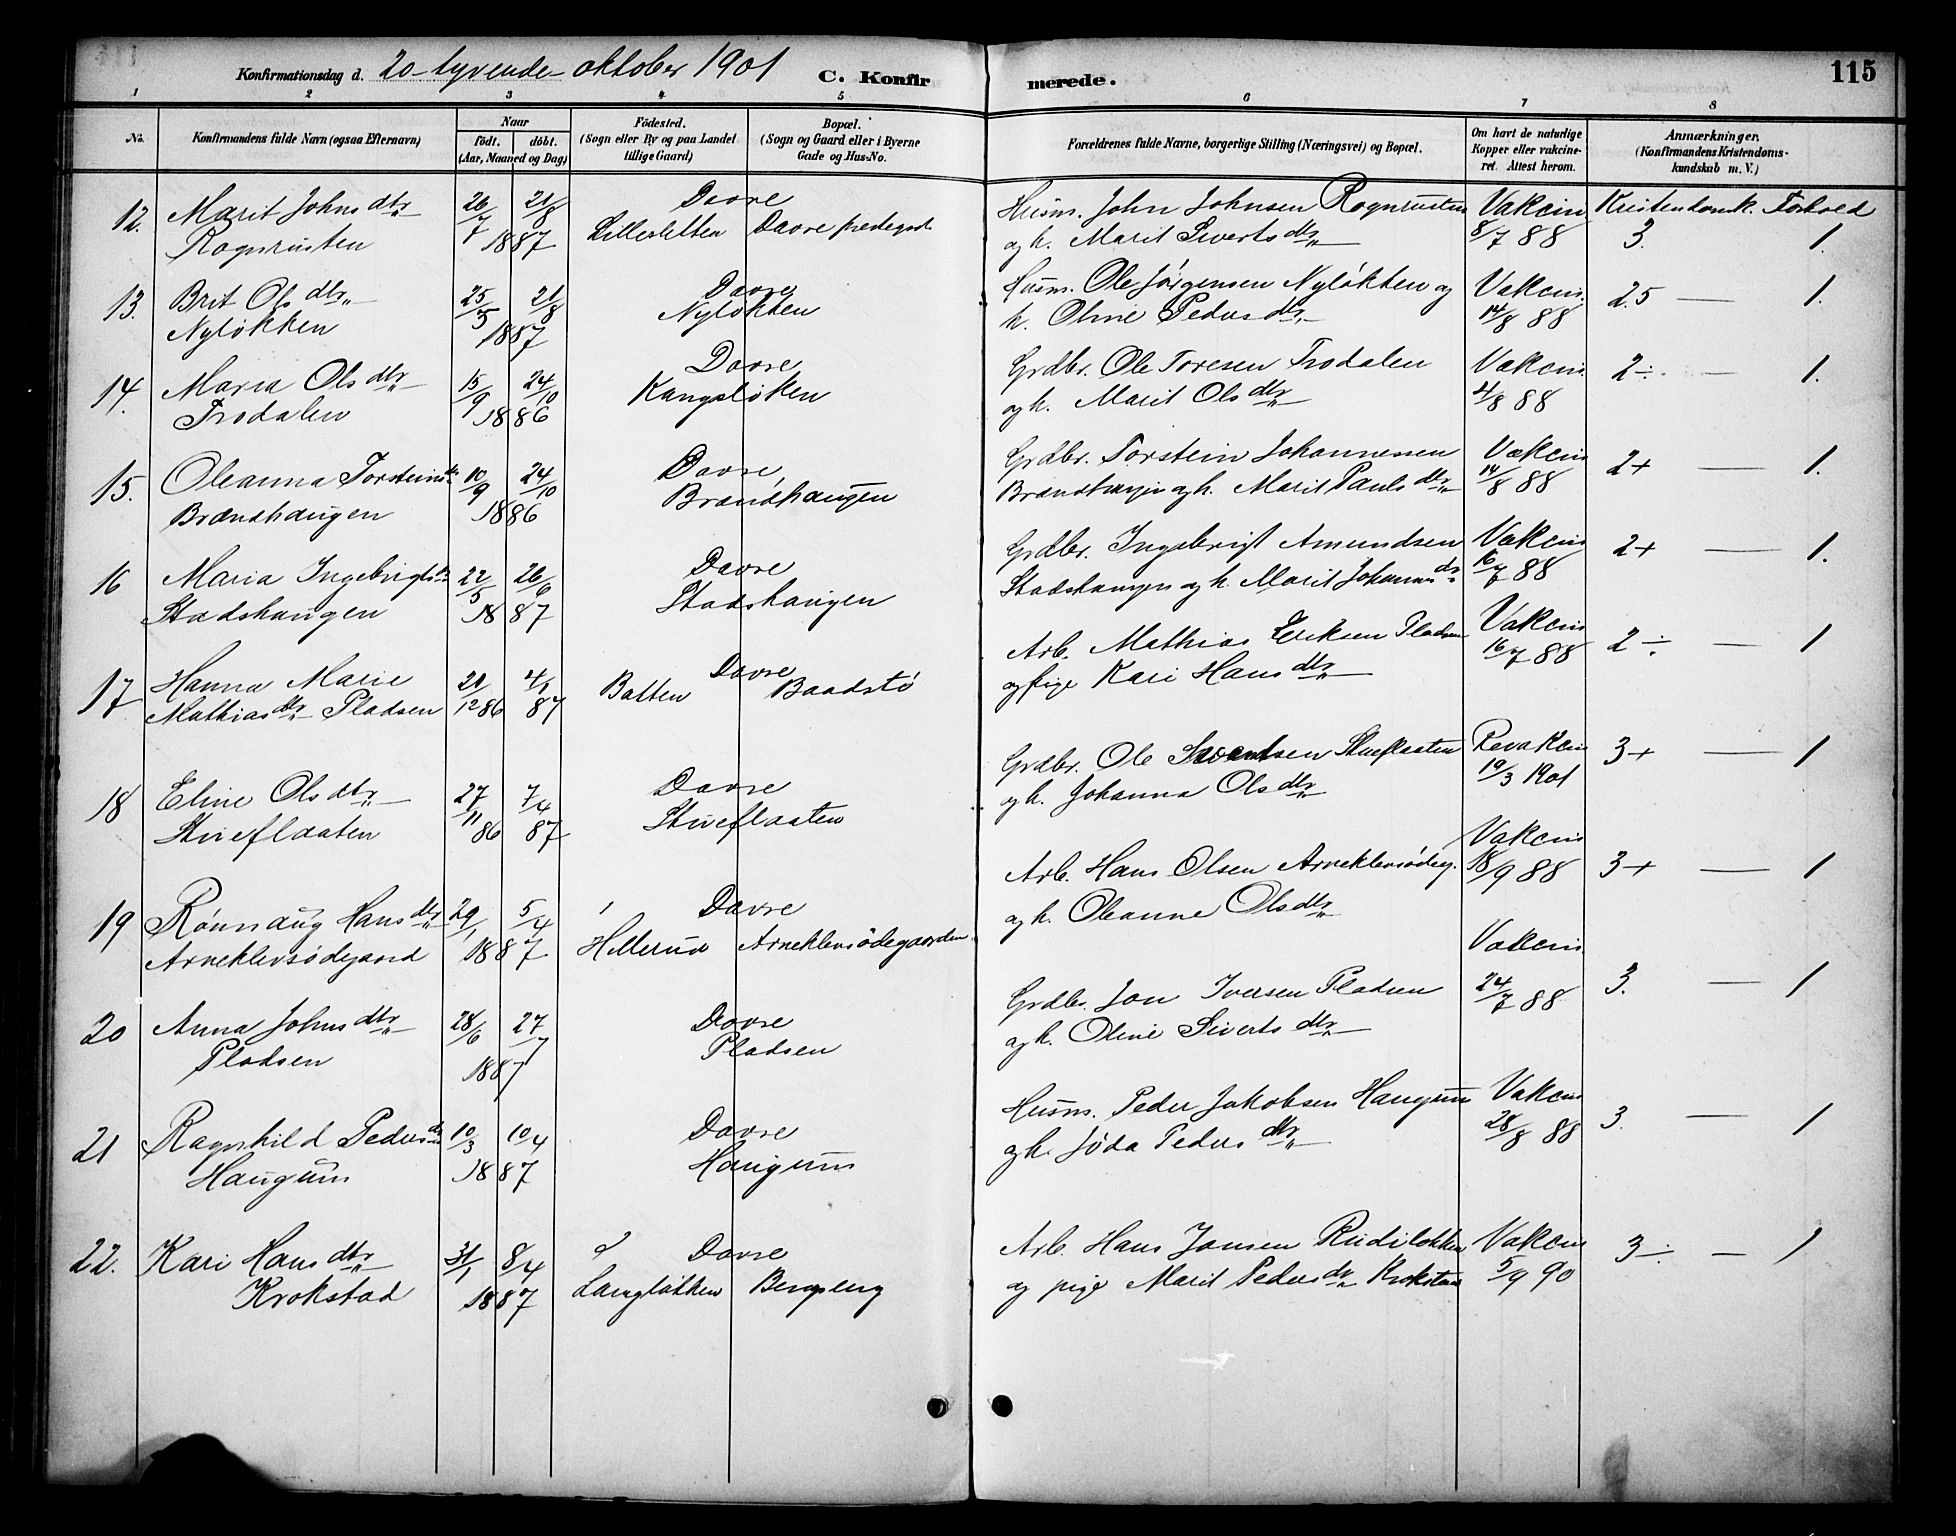 Konfirmationsdag d. 20 - tyvende - oktober 1901 C. Konfirmerede. 115
1 2 3 4 5 6 7 8
No. Konfirmandens fulde Navn (ogsaa Efternavn) Naar født. døbt. (Aar, Maaned og Dag) Födested. (Sogn eller By og paa Landet tillige Gaard) Bopæl. (Sogn og Gaard eller i Byerne Gade og Hus-No. Forældrenes fulde Navne, borgerlige Stilling (Næringsvei) og Bopæl. Om havt de naturlige Kopper eller vakcineret. Attest herom. Anmærkninger, (Konfirmandens Kristendomskundskab m. V.)
12. Marit Johnsdtr. 26/7 21/8 Dovre Husm. John Johnsen Rognrusten Vakcin Kristendomsk. Forhold
Rognrusten 1887 Lillesletten Dovre og h. Marit Sivertsdtr. 8/7 88 3. 1.
13. Brit Olsdtr. 25/5 21/8 Dovre Husm. Ole Jörgensen Nyløkken og Vakcin. 2.5 — 1.
Nyløkken 1887 Nyløkken h. Oline Pedersdtr. 14/8 88
14. Maria Olsdtr. 15/9 24/10 Dovre Grdbr. Ole Toresen Trodalen Vakcin. 2÷ — 1.
Trodalen 1886 Kangsløken og h. Marit Olsdtr. 4/8 88
15. Oleanna Torsteinsdtr. 10/9 24/10 Dovre Grdbr. Torstein Johannessen Vakcin 2+ — 1.
Brændhaugen 1886 Brændhaugen Brændhaugen og h. Marit Paulsdtr. 14/8 88
16 Maria Ingebrigtsdtr. 22/5 26/6 Dovre Grdbr. Ingebrigt Amundsen Vakcin 2+ — 1.
Stadshaugen 1887 Stadshaugen Stadshaugen og h. Marit Johannsdtr. 16/7 88
17 Hanna Marie 21/12 86 4/1 87 Dovre Arb. Mathias Eriksen Pladsen Vakcin 2÷ — 1
Mathiasdtr. Pladsen Batten Baadstö og pige Kari Hansdtr. 16/7 88
18 Eline Olsdtr. 27/11 86 7/4 87 Dovre Grdbr. Ole Stueflaaten Revakcin 3+ — 1
Stueflaaten Stueflaaten og h. Johanna Olsdtr. 19/3 1901
19 Rønnaug Hansdtr. 29/1 5/4 Dovre Arb. Hans Olsen Arneklevsødeg. Vakcin 3+ — 1
Arneklevsødegaard 1887 Hillerud Arneklevsödegaarden og h. Oleanne Olsdtr. 18/9 88
20 Anna Johnsdtr. 28/6 27/7 Dovre Grdbr. Jon Iversen Pladsen Vakcin. 3. — 1
Pladsen 1887 Pladsen og h. Oline Sivertsdtr. 24/7 88
21 Ragnhild Pedersdtr. 10/3 10/4 Dovre Husm. Peder Jakobsen Haugum Vakcin 3. — 1
Haugum 1887 Haugum og h. Jøda Pedersdtr. 28/8 88
22. Kari Hansdtr. 31/1 8/4 Dovre Arb. Hans Jonsen Rudiløkken Vakcin 3÷ — 1
Krokstad 1887 Langløkken Bergseng og pige Marit Pedersdtr. Krokstad 5/9 90